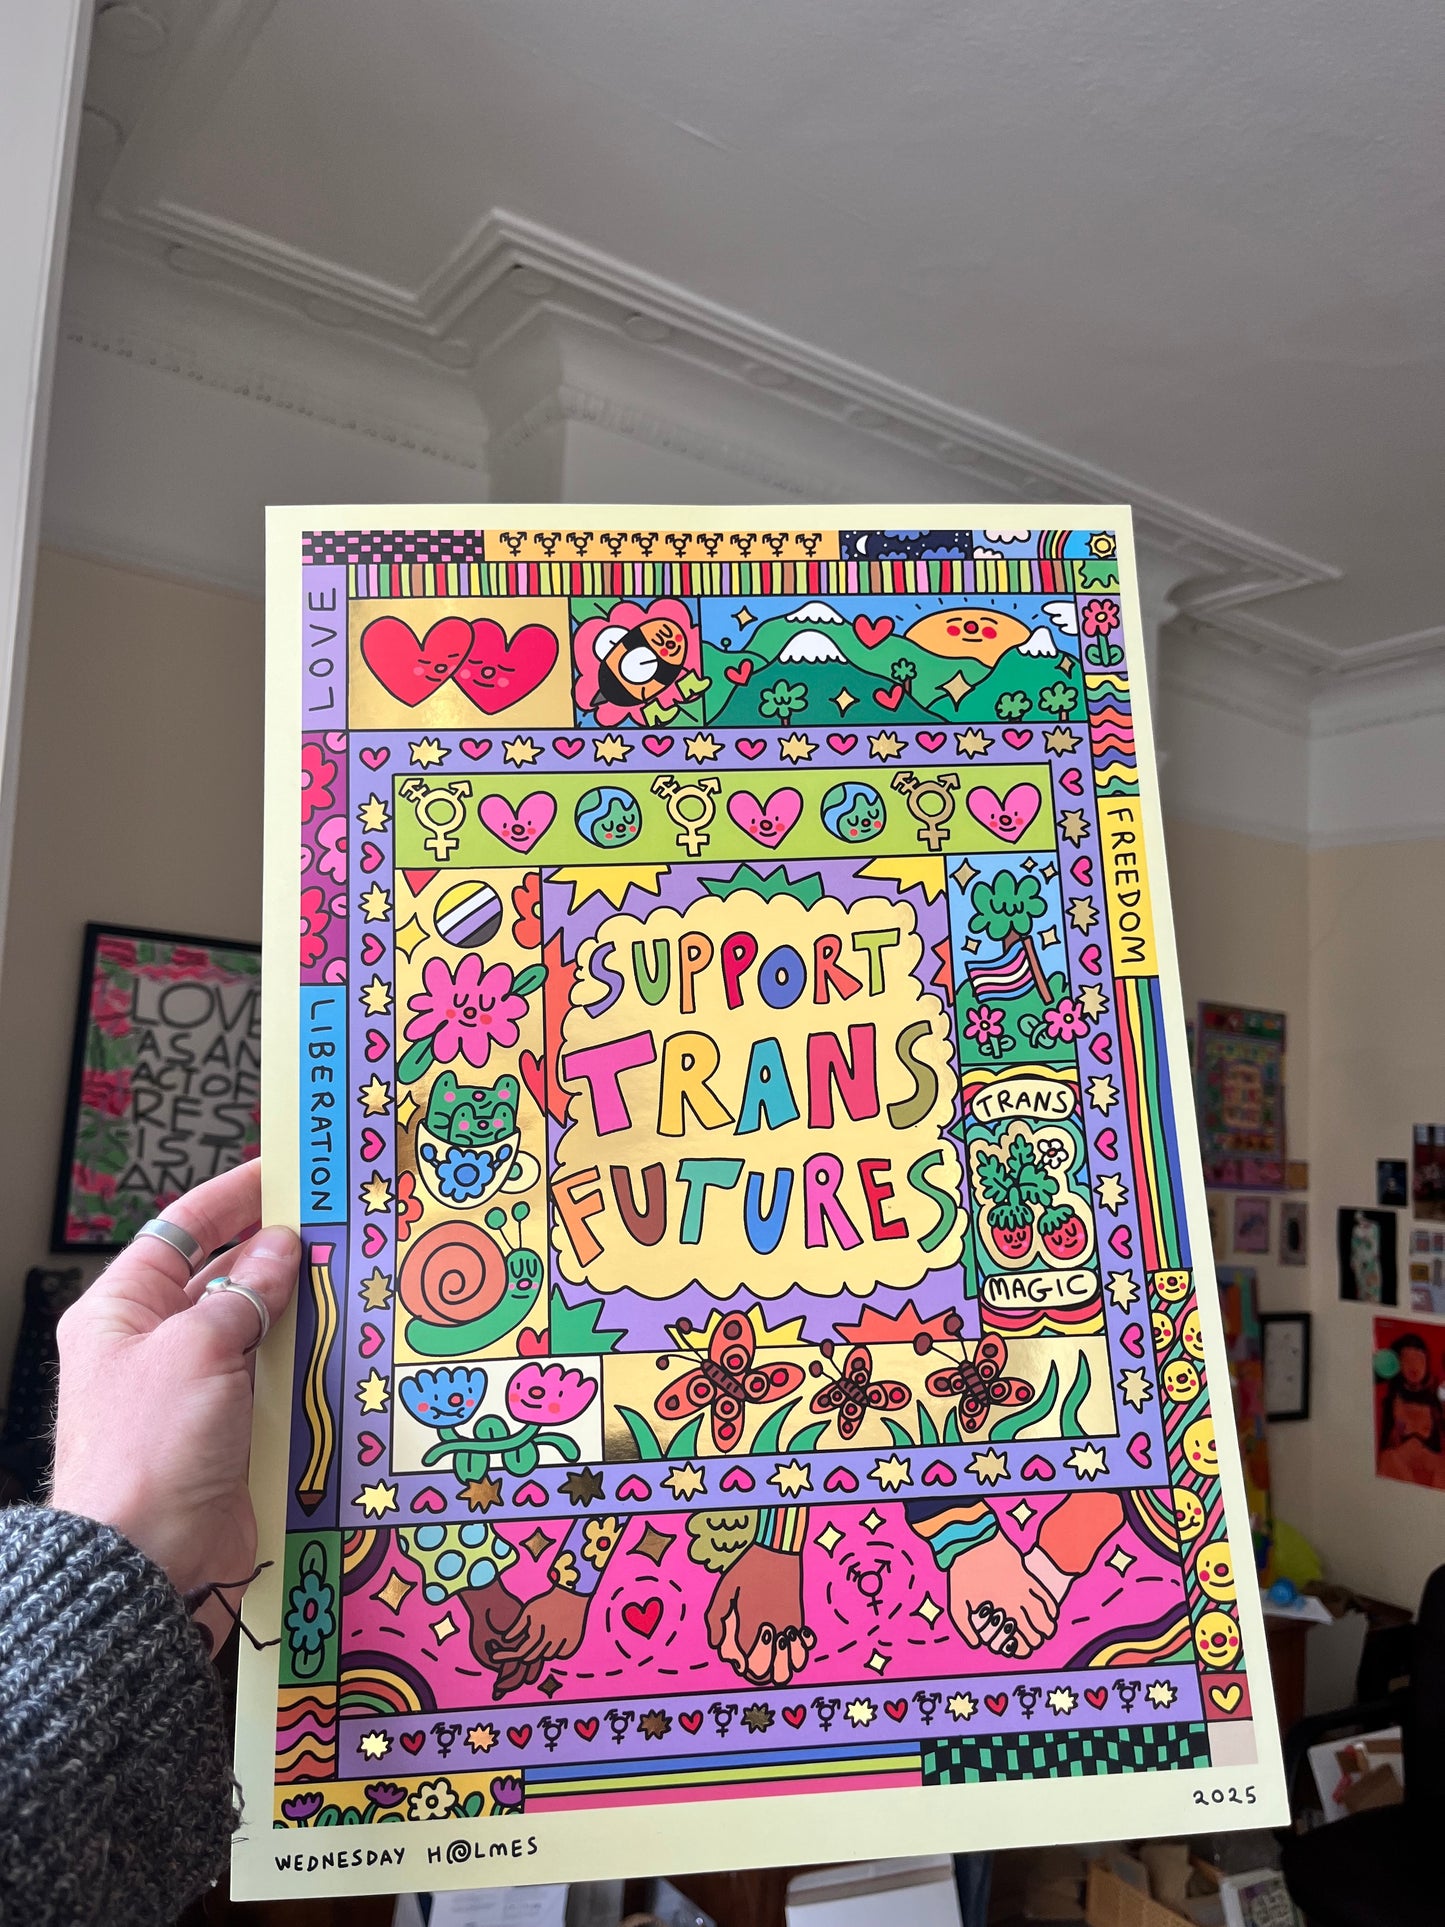 LOVE
FREEDOM
LIBERATION
SUPPORT
TRANS
FUTURES
TRANS
MAGIC
WEDNESDAY HOLMES
2025
LOVE
AS AN
ACT OF
RES
IST
AN